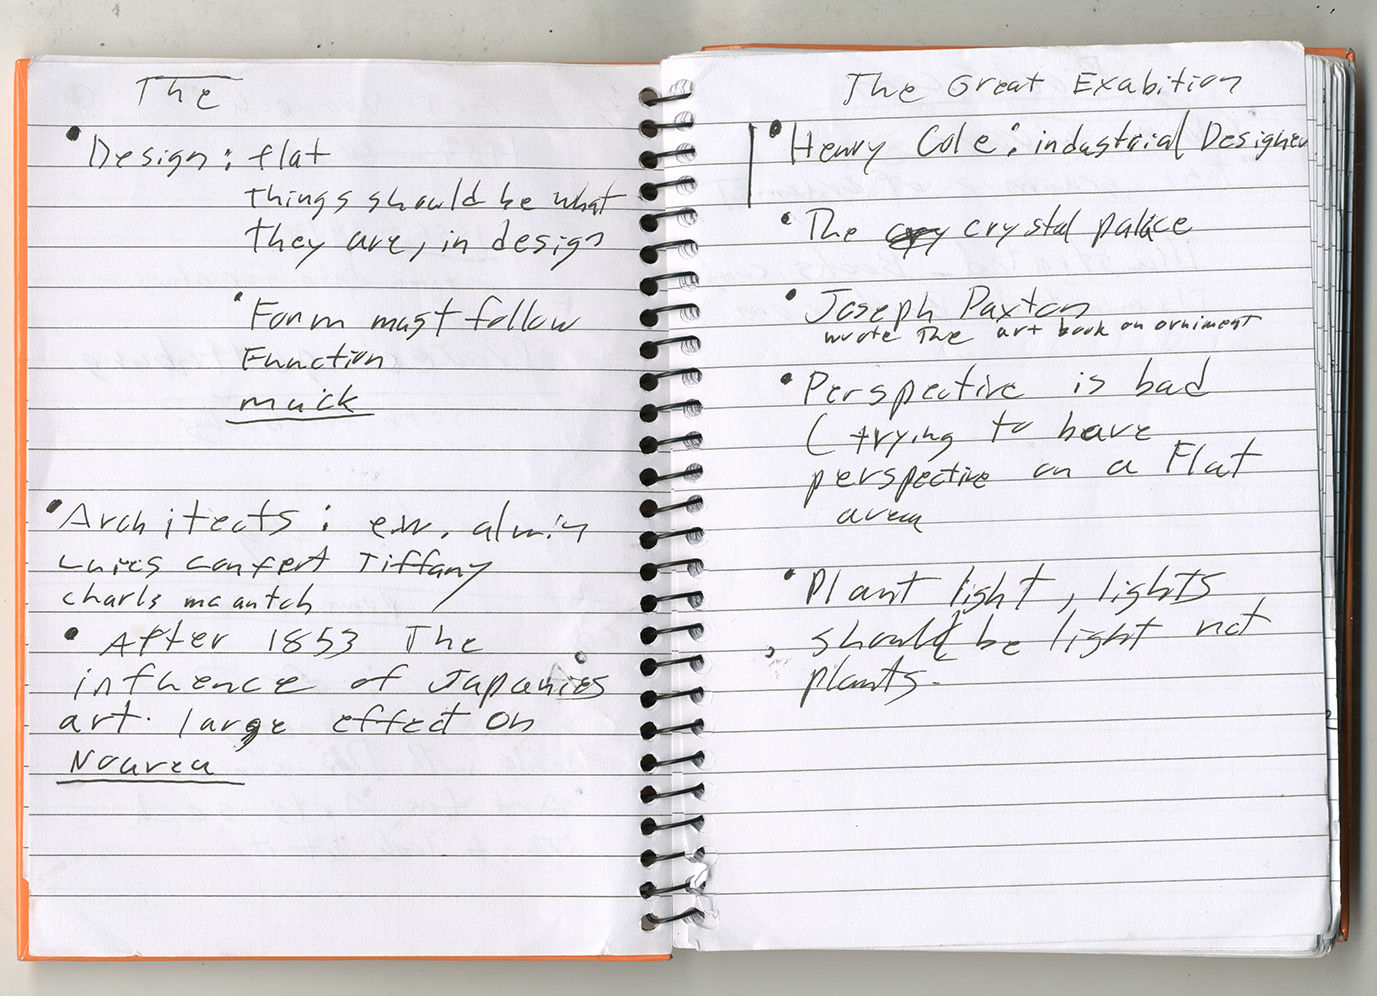 The
• Design: flat
things should be what
they are, in design
• Form must follow
Function
muick
• Architects: e.w.
Tiffany
charls
• After 1853 The
influence of Japanies
art. large effect on
Nouvea
The Great Exabition
• Henry Cole: industrial Designer
• The crystal palace
• Joseph Paxton
wrote The art book on orniment
• Perspective is bad
( trying to have
perspective on a Flat
area
• Plant light, lights
should be light not
plants.